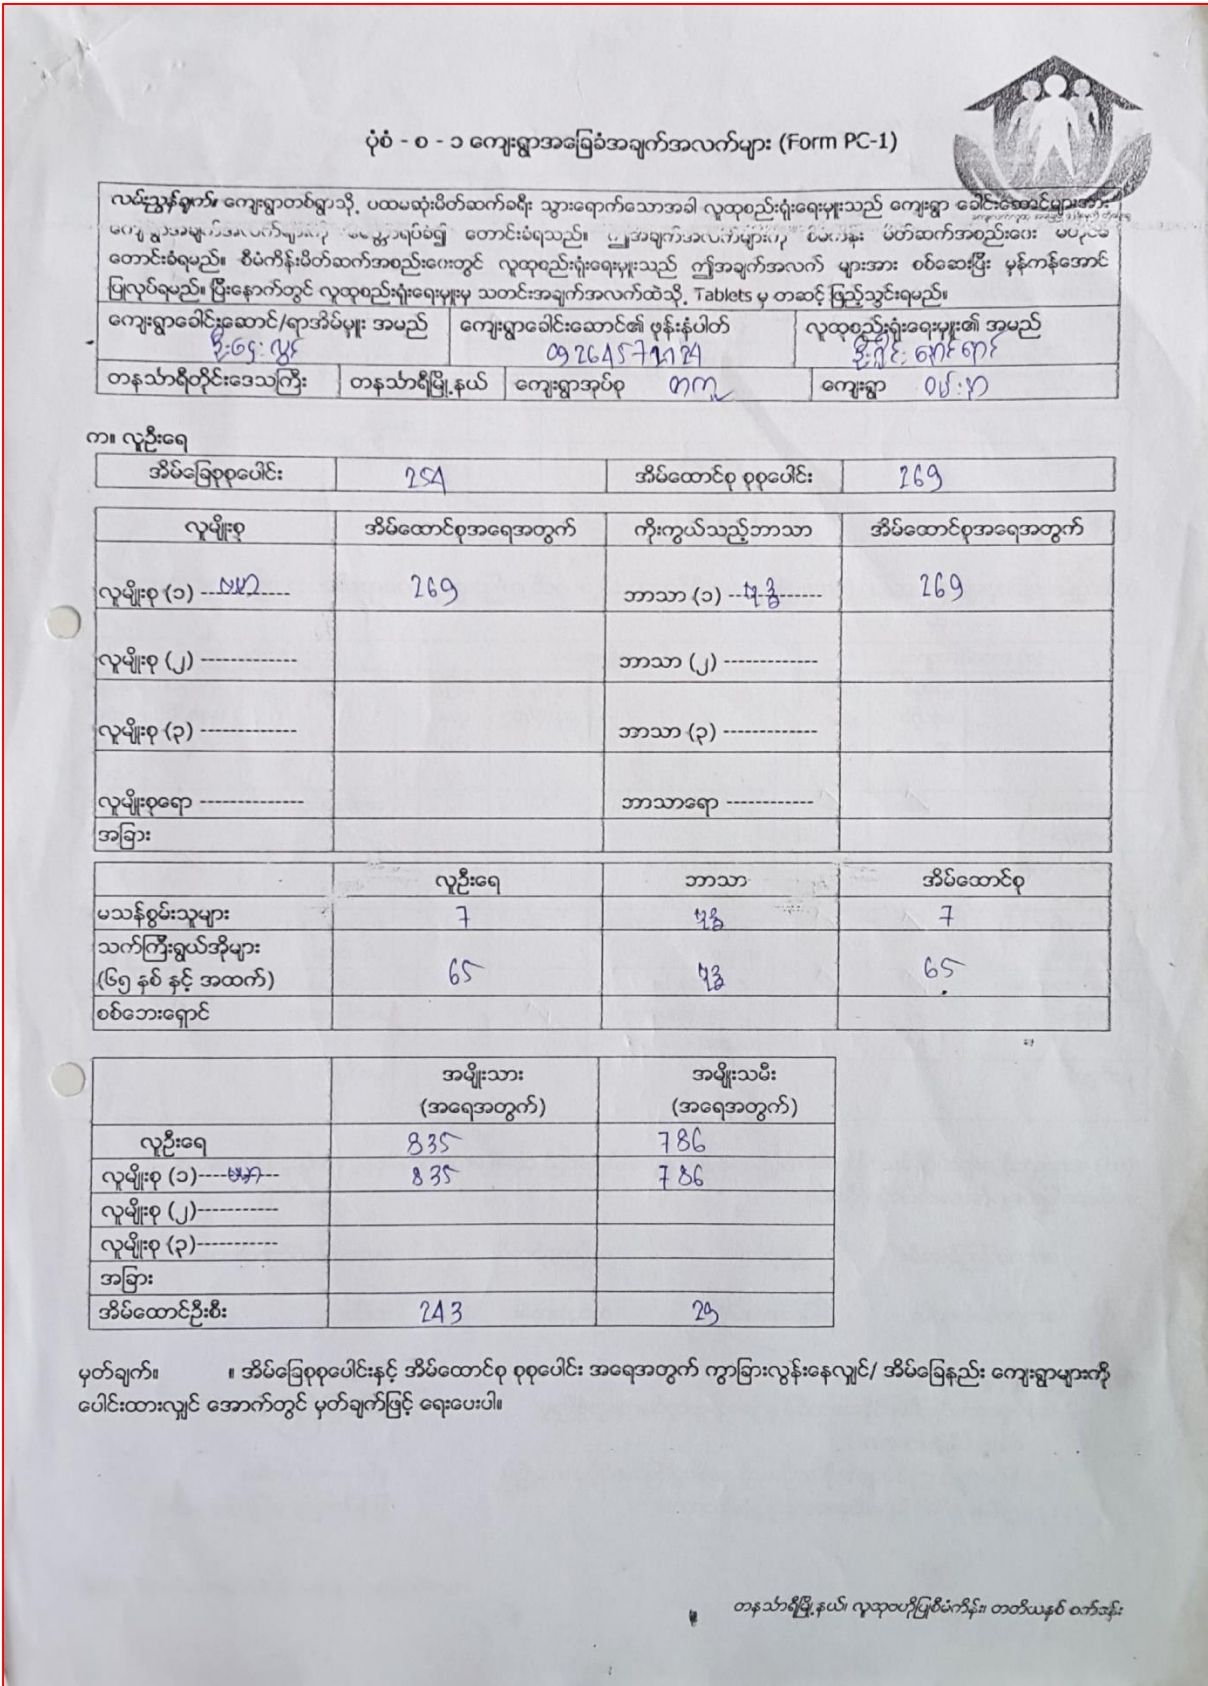 ပုံစံ - စ - ၁ ကျေးရွာအခြေခံအချက်အလက်များ (Form PC-1)
လမ်းညွှန်ချက်။ ကျေးရွာတစ်ရွာသို့ ပထမဆုံးမိတ်ဆက်ခရီး သွားရောက်သောအခါ လူထုစည်းရုံးရေးမှူးသည် ကျေးရွာ ခေါင်းဆောင်များအား
ကျေးရွာအချက်အလက်များကို မေတ္တာရပ်ခံ၍ တောင်းခံရသည်။ ဤအချက်အလက်များကို စီမံကိန်း မိတ်ဆက်အစည်းဝေး မပြုလုပ်မီ
တောင်းခံရမည်။ စီမံကိန်းမိတ်ဆက်အစည်းဝေးတွင် လူထုစည်းရုံးရေးမှူးသည် ဤအချက်အလက် များအား စစ်ဆေးပြီး မှန်ကန်အောင်
ပြုလုပ်ရမည်။ ပြီးနောက်တွင် လူထုစည်းရုံးရေးမှူးမှ သတင်းအချက်အလက်ထဲသို့ Tablets မှ တဆင့် ဖြည့်သွင်းရမည်။
ကျေးရွာခေါင်းဆောင်/ရာအိမ်မှူး အမည် ကျေးရွာခေါင်းဆောင်၏ ဖုန်းနံပါတ် လူထုစည်းရုံးရေးမှူး၏ အမည်
တနင်္သာရီတိုင်းဒေသကြီး တနင်္သာရီမြို့နယ် ကျေးရွာအုပ်စု တကူ ကျေးရွာ
က။ လူဦးရေ
အိမ်ခြေစုစုပေါင်း 254 အိမ်ထောင်စု စုစုပေါင်း 269
လူမျိုးစု အိမ်ထောင်စုအရေအတွက် ကိုးကွယ်သည့်ဘာသာ အိမ်ထောင်စုအရေအတွက်
လူမျိုးစု (၁) ဗမာ 269 ဘာသာ (၁) ဗုဒ္ဓ 269
လူမျိုးစု (၂) ------------- ဘာသာ (၂) -------------
လူမျိုးစု (၃) ------------- ဘာသာ (၃) -------------
လူမျိုးစုရော -------------- ဘာသာရော ------------
အခြား
လူဦးရေ ဘာသာ အိမ်ထောင်စု
မသန်စွမ်းသူများ 7 ဗုဒ္ဓ 7
သက်ကြီးရွယ်အိုများ
(၆၅ နှစ် နှင့် အထက်) 65 ဗုဒ္ဓ 65
စစ်ဘေးရှောင်
အမျိုးသား အမျိုးသမီး
(အရေအတွက်) (အရေအတွက်)
လူဦးရေ 835 786
လူမျိုးစု (၁)----ဗမာ-- 835 786
လူမျိုးစု (၂)-----------
လူမျိုးစု (၃)-----------
အခြား
အိမ်ထောင်ဦးစီး 243 29
မှတ်ချက်။ ။ အိမ်ခြေစုစုပေါင်းနှင့် အိမ်ထောင်စု စုစုပေါင်း အရေအတွက် ကွာခြားလွန်းနေလျှင်/ အိမ်ခြေနည်း ကျေးရွာများကို
ပေါင်းထားလျှင် အောက်တွင် မှတ်ချက်ဖြင့် ရေးပေးပါ။
တနင်္သာရီမြို့နယ်၊ လူထုဗဟိုပြုစီမံကိန်း၊ တတိယနှစ် စက်ဝန်း